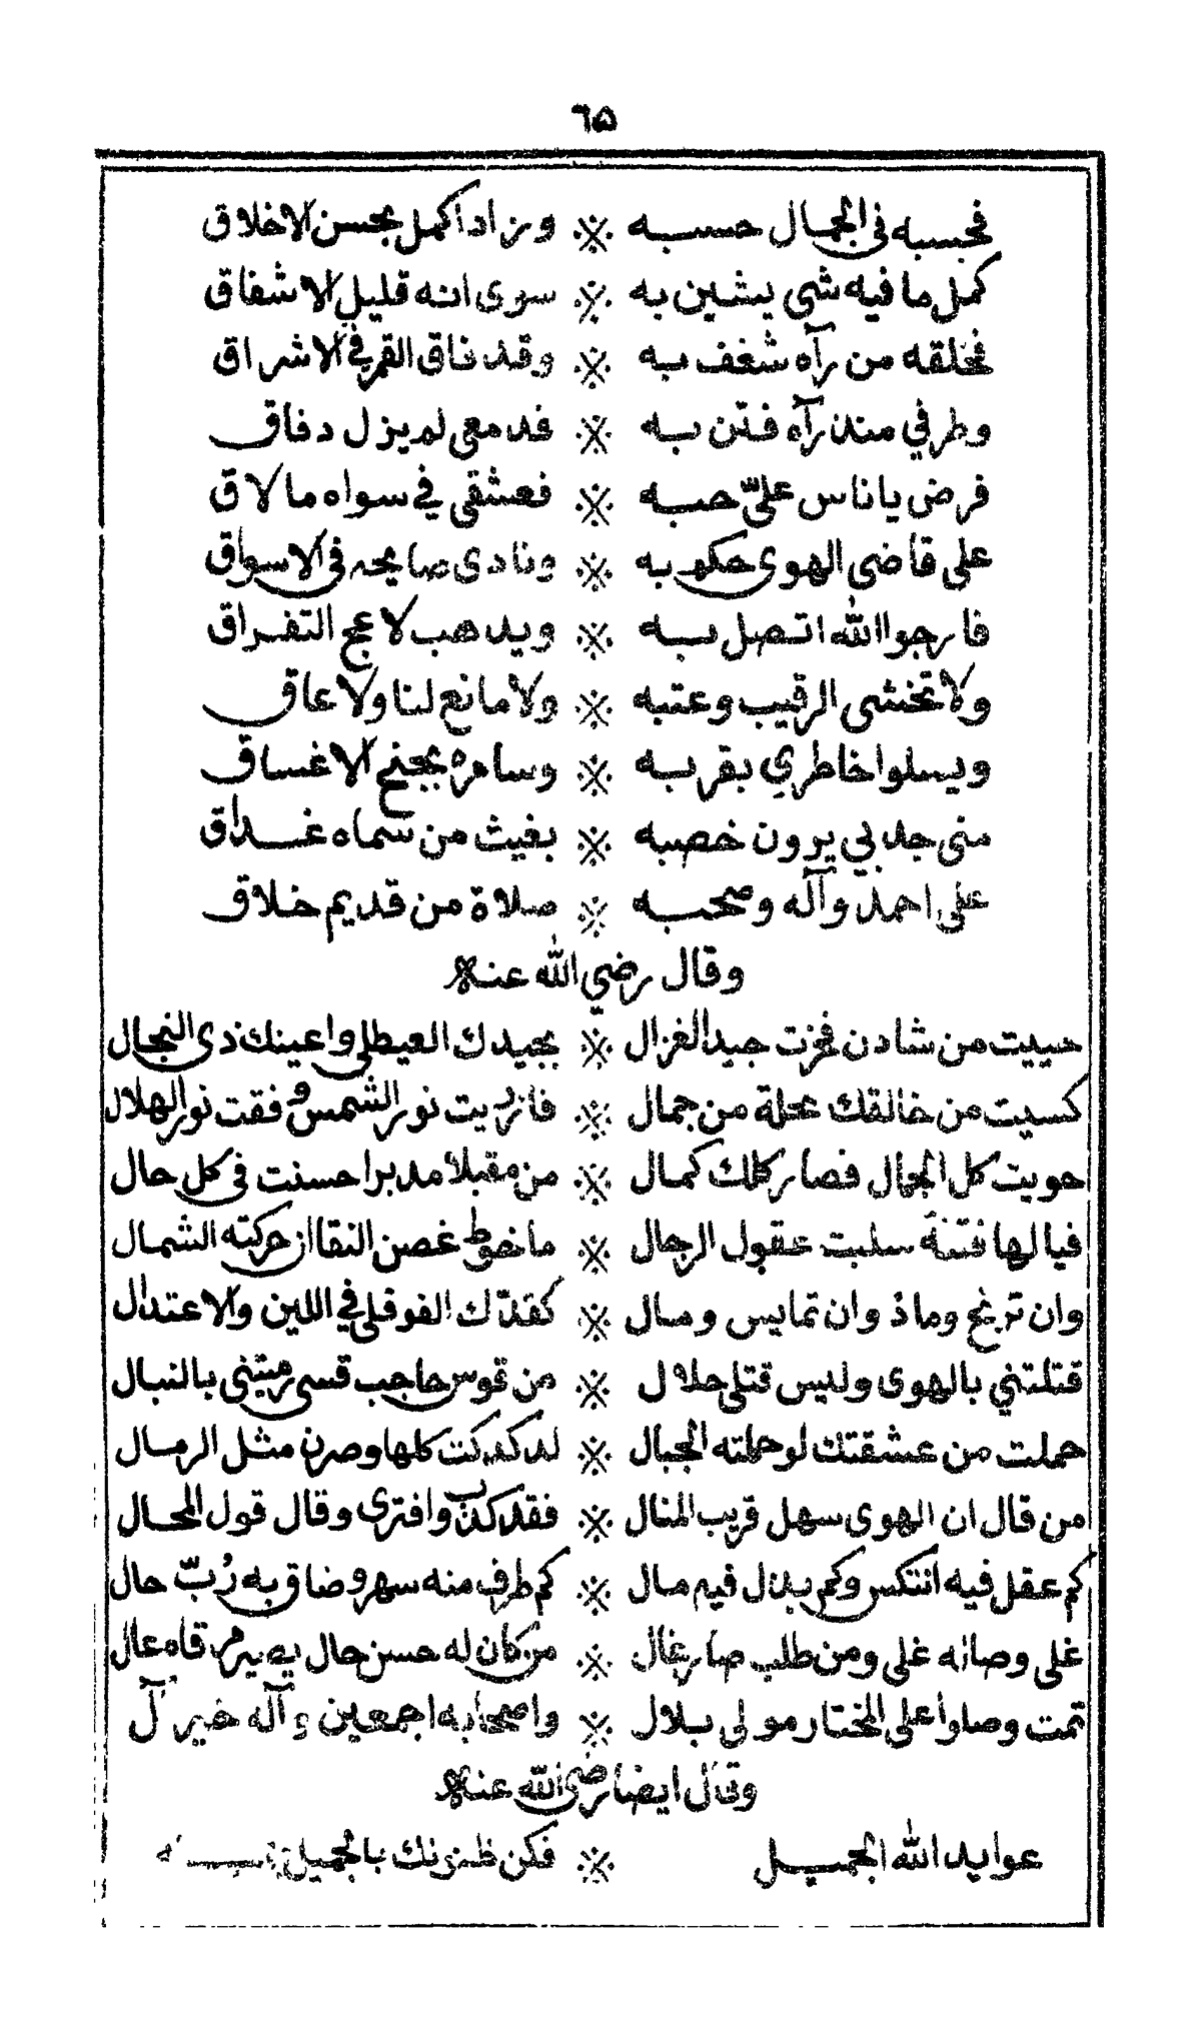 ٦٥
فحسبه في الجمال حسبه ※ وزاد اكمل بحسن الاخلاق
كمل ما فيه شي يشين به ※ سوى انه قليل الاشفاق
فخلقه من رآه شغف به ※ وقد فاق القمر في الاشراق
وطرفي منذ رآه فتن به ※ فدمعي لم يزل دفاق
فرض يا ناس عليّ حبه ※ فعشقي في سواه ما لاق
على قاضى الهوى حكم به ※ ونادى صايحه فى الاسواق
فارجوا الله اتصل به ※ ويذهب لاعج التفراق
ولا تخشى الرقيب وعتبه ※ ولا مانع لنا ولا عاق
ويسلوا خاطري بقربه ※ وسامره بجنح الاغساق
متى جدبي يرون خصبه ※ بغيث من سماه غداق
على احمد وآله وصحبه ※ صلاة من قديم خلاق
وقال رضي الله عنه
حييت من شادن فخزت جيد الغزال ※ بجيدك العيطلي واعينك ذى النجال
كسيت من خالقك بحلة من جمال ※ فازريت نور الشمس وفقت نور الهلال
حويت كل الجمال فصار كلك كمال ※ من مقبلا مدبرا حسنت فى كل حال
فيالها فتنة سلبت عقول الرجال ※ ما خوط غصن النقا از حركته الشمال
وان ترنح وماذ وان تمايس ومال ※ كقدّك الفوفلي في اللين والاعتدال
قتلتني بالهوى وليس قتلي حلال ※ من قوس حاجب قسى رميتنى بالنبال
حملت من عشقتك لو حملته الجبال ※ لدكدكت كلها وصرن مثل الرمال
من قال ان الهوى سهل قريب المنال ※ فقد كذب وافترى وقال قول المحال
كم عقل فيه انتكس وكم بلال فيه مال ※ كم طرف منه سهر وضاق به رُبّ حال
غلى وصاله غلى ومن طلب صار غال ※ من كان له حسن حال به يرم قاه عال
تمت وصلوا على المختار مولى بلال ※ واصحابه اجمعين وآله خير آل
وقال ايضا رضى الله عنه
عوايد الله الجميل ※ فكن ظنونك بالجميل